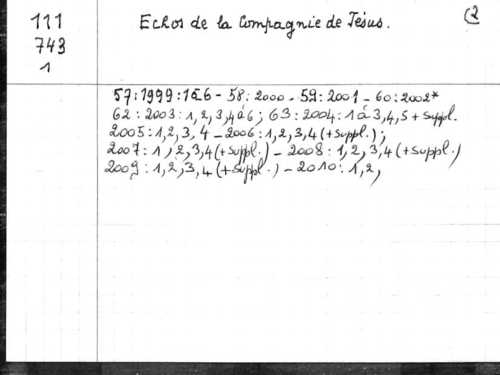 111
743
1
Echos de la Compagnie de Jésus.
(2
57:1999:1à6 - 58:2000 - 59:2001 - 60:2002*
62:2003:1,2,3,4à6; 63:2004:1à3,4,5+suppl.
2005:1,2,3,4 - 2006:1,2,3,4(+suppl.);
2007:1,2,3,4(+suppl.) - 2008:1,2,3,4(+suppl.)
2009:1,2,3,4(+suppl.) - 2010:1,2,